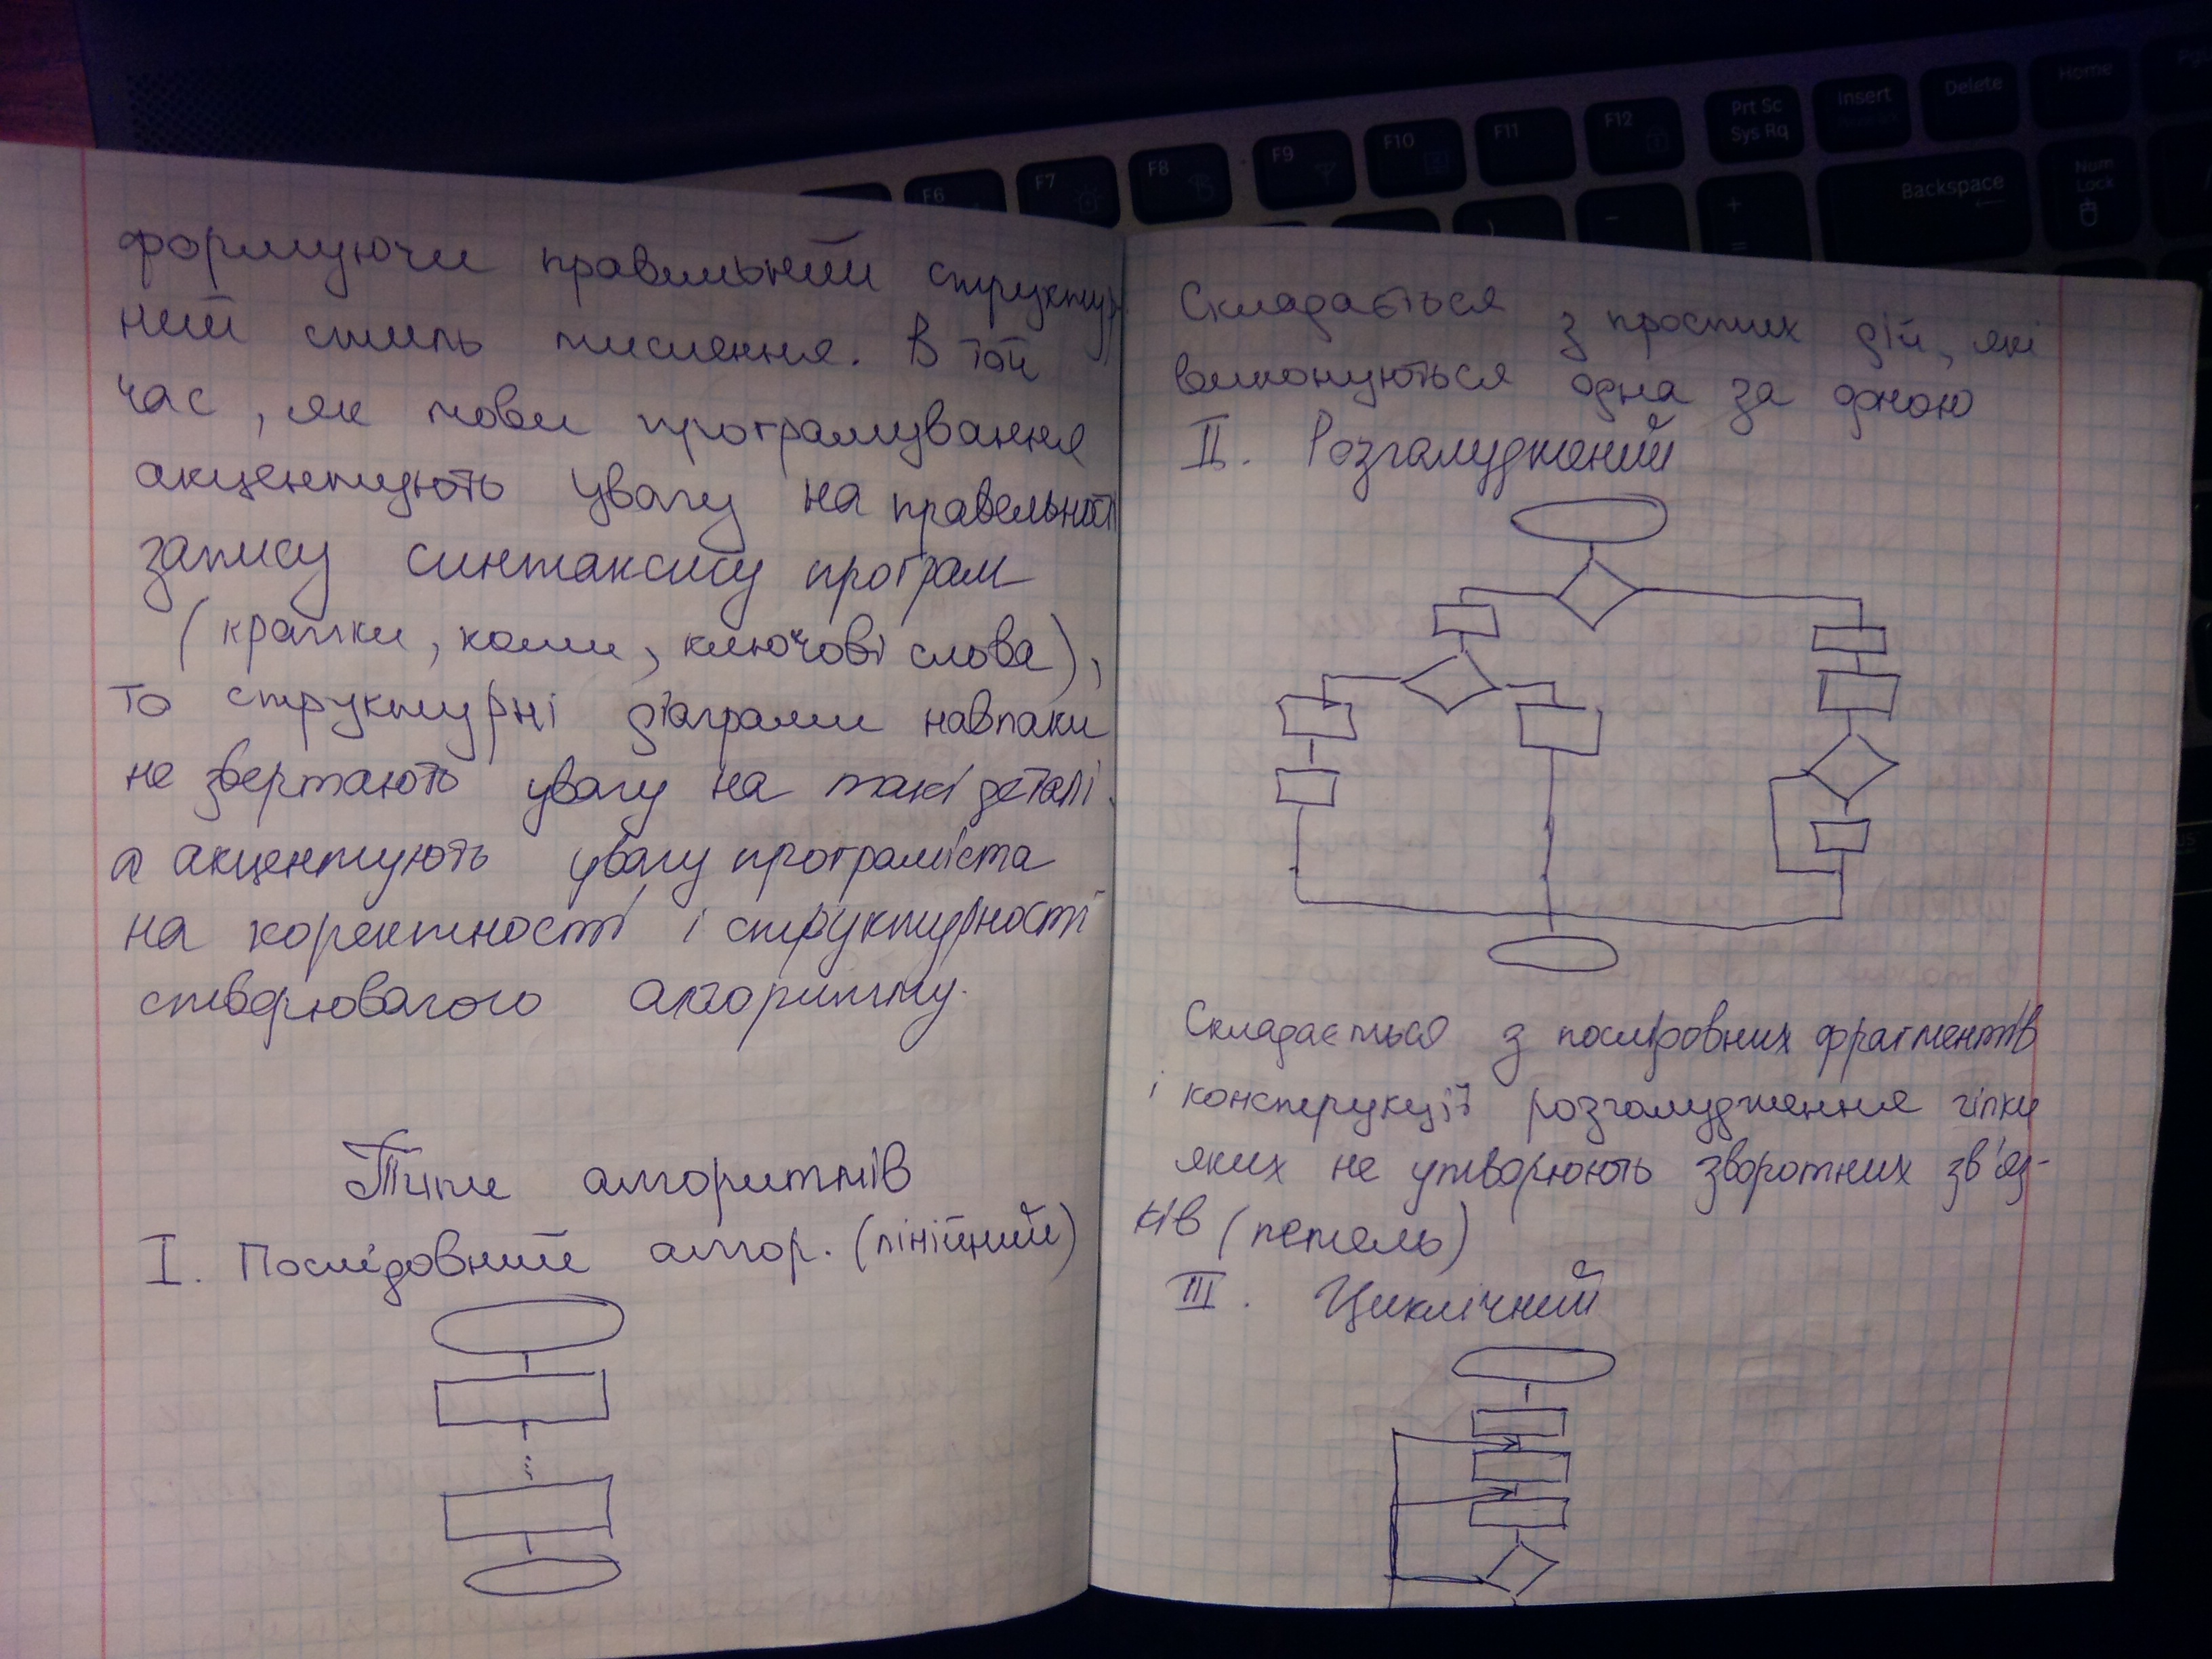 F6
F7
F8
F9
F10
F11
F12
Prt Sc
Sys Rq
Insert
Delete
Home
Backspace
Num
Lock
формуючи правильний структур
ний стиль мислення. В той
час, як мови програмування
акцентують увагу на правельності
запису синтаксису програм
(крапки, коми, ключові слова),
то структурні діаграми навпаки
не звертають увагу на такі деталі.
а акцентують увагу програміста
на коректності і структурності
створюваного алгоритму.
Типи алгоритмів
I. Послідовний алгор. (лінійний)
Складається з простих дій, які
виконуються одна за одною
II. Розгалуджений
Складається з послідовних фрагментів
і конструкції розгалудження гілки
яких не утворюють зворотних зв'яз-
ків (петель)
III. Циклічний